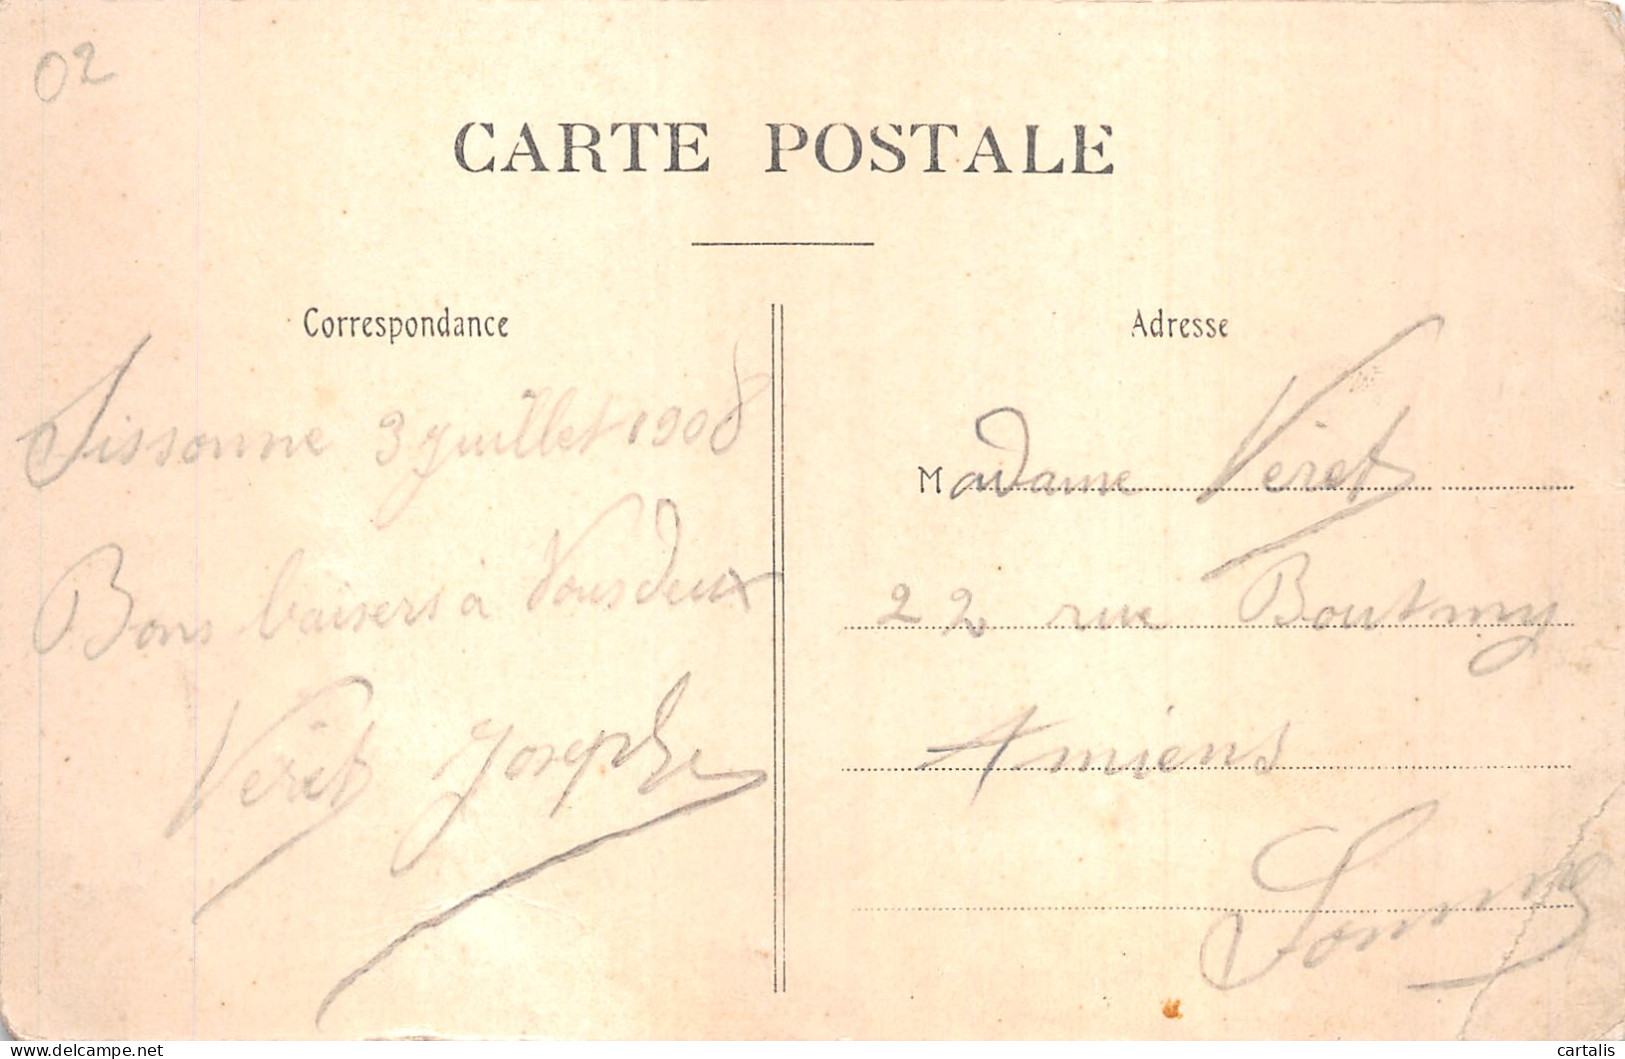 02
CARTE POSTALE
Correspondance
Sissonne 3 juillet 1908
Bons baisers à Vous deux
Véret Joseph
Adresse
Madame Véret
22 rue Boutmy
Amiens
Somme
delcampe.net
cartalis